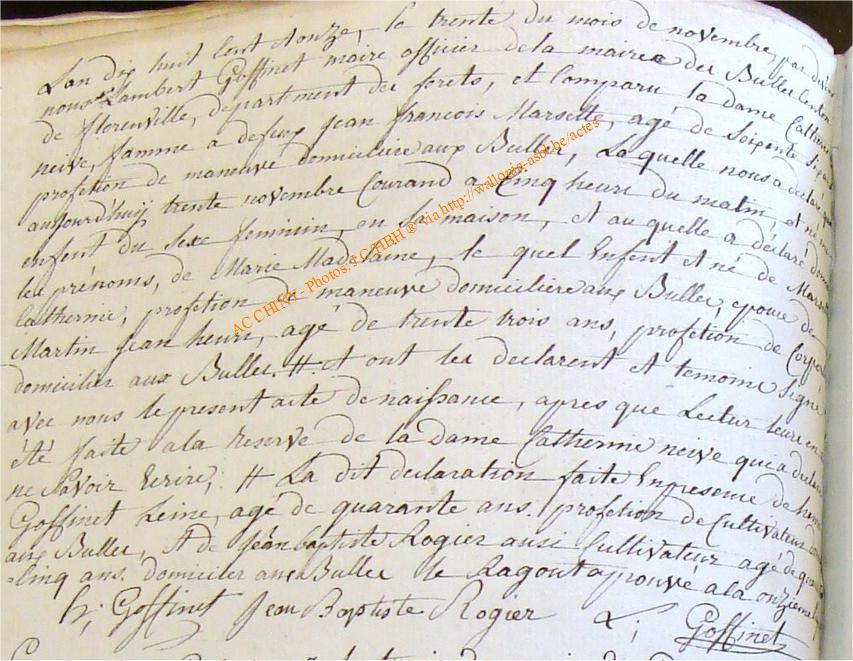 L'an dix huit Cent & onze, le trente du mois de novembre, par devan
nous Lambert Goffinet maire officier de la mairie des Bulles Canton
de florenville, departement des forets, et Comparu, la dame Catherine
neive, famme a defeux jean francois Marsette, agé de Soixente
profetion de maneuve domiciliere aux Bulles, La quelle nous a declare que
aujourd'huij trente novembre Courand a Cinq heure du matin, et né un
enfent du Sexe feminin, en Sa maison, et au quelle a déclaré donner
les prénoms, de Marie Madelaine, le quel Enfent & né de Marsette
Catherine, profetion de maneuve domiciliere aux Bulles, epouce de
Martin jean henri, agé de trente trois ans, profetion de
domicilier aux Bulles. # & ont les declarent & temoins Signé
avec nous le present acte de naissance, apres que Lectur leure en a
été faite a la reserve de la dame Catherine neive qui a declaré
ne Savoir Ecrire; # La dit declaration faite En presence de
Goffinet agé de quarante ans, profetion de Cultivateur
aux Bulles, & de jean baptiste Rogier ausi Cultivateur agé de
Cinq ans. domicilier aux Bulles le Ragout aprouvé a la onzieme
h; Goffinet Jean Baptiste Rogier L; Goffinet
AC CHINY - Photos: © CTHBH ® via http://wallonia-asbl.be/actes